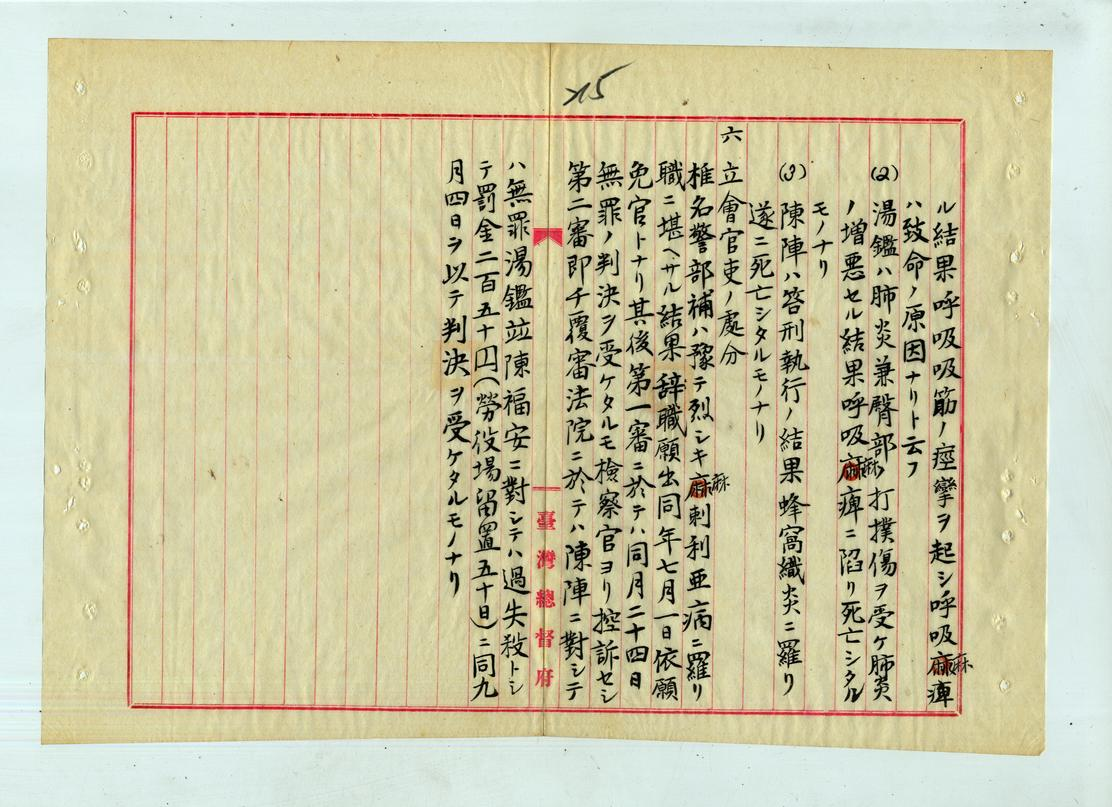 ル結果呼吸吸筋ノ痙攣ヲ起シ呼吸麻痺
ハ致命ノ原因ナリト云フ
(2) 湯鑑ハ肺炎兼臀部ノ打撲傷ヲ受ケ肺炎
ノ増悪セル結果呼吸麻痺ニ陷リ死亡シタル
モノナリ
(3) 陳陣ハ笞刑執行ノ結果蜂窩織炎ニ羅リ
遂ニ死亡シタルモノナリ
六 立會官吏ノ處分
椎名警部補ハ豫テ烈シキ麻刺利亜病ニ羅リ
職ニ堪ヘサル結果辞職願出同年七月一日依願
免官トナリ其後第一審ニ於テハ同月二十四日
無罪ノ判決ヲ受ケタルモ檢察官ヨリ控訴セシ
第二審即チ覆審法院ニ於テハ陳陣ニ對シテ
臺灣總督府
ハ無罪湯鑑並陳福安ニ對シテハ過失殺トシ
テ罰金二百五十円(勞役場留置五十日)ニ同九
月四日ヲ以テ判決ヲ受ケタルモノナリ